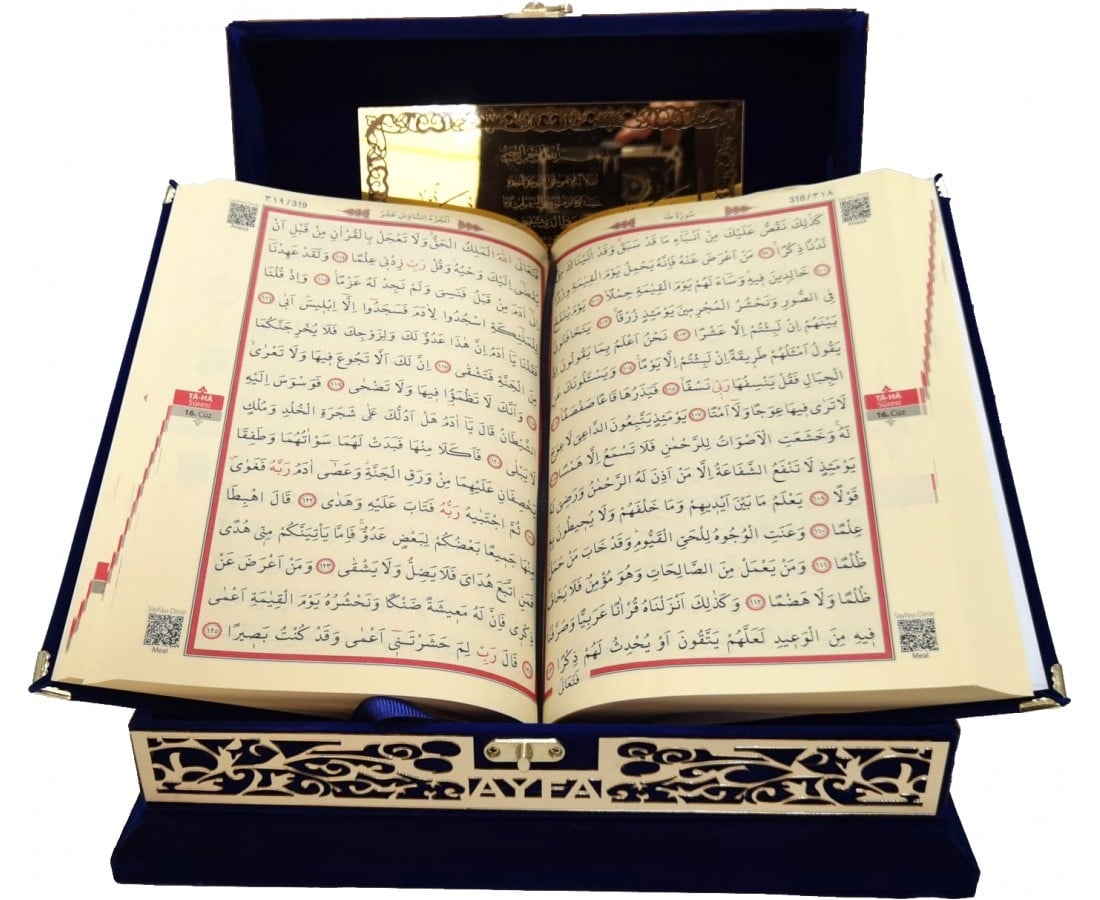 ٣١٨ / 318
سُورَةُ طٰهٰ
كَذٰلِكَ نَقُصُّ عَلَيْكَ مِنْ اَنْبَٓاءِ مَا قَدْ سَبَقَۚ وَقَدْ اٰتَيْنَاكَ مِنْ
لَدُنَّا ذِكْرًاۚ ﴿٩٩﴾ مَنْ اَعْرَضَ عَنْهُ فَاِنَّهُ يَحْمِلُ يَوْمَ الْقِيٰمَةِ وِزْرًا
﴿١٠٠﴾ خَالِدٖينَ فٖيهِ وَسَٓاءَ لَهُمْ يَوْمَ الْقِيٰمَةِ حِمْلًا ﴿١٠١﴾ يَوْمَ يُنْفَخُ
فِي الصُّورِ وَنَحْشُرُ الْمُجْرِمٖينَ يَوْمَئِذٍ زُرْقًا ﴿١٠٢﴾ يَتَخَافَتُونَ
بَيْنَهُمْ اِنْ لَبِثْتُمْ اِلَّا عَشْرًا ﴿١٠٣﴾ نَحْنُ اَعْلَمُ بِمَا يَقُولُونَ اِذْ
يَقُولُ اَمْثَلُهُمْ طَرٖيقَةً اِنْ لَبِثْتُمْ اِلَّا يَوْمًا ﴿١٠٤﴾ وَيَسْـَٔلُونَكَ عَنِ
الْجِبَالِ فَقُلْ يَنْسِفُهَا رَبّٖي نَسْفًا ﴿١٠٥﴾ فَيَذَرُهَا قَاعًا صَفْصَفًا
لَا تَرٰى فٖيهَا عِوَجًا وَلَٓا اَمْتًا ﴿١٠٧﴾ يَوْمَئِذٍ يَتَّبِعُونَ الدَّاعِيَ لَا عِوَجَ
لَهُ وَخَشَعَتِ الْاَصْوَاتُ لِلرَّحْمٰنِ فَلَا تَسْمَعُ اِلَّا هَمْسًا ﴿١٠٨﴾
يَوْمَئِذٍ لَا تَنْفَعُ الشَّفَاعَةُ اِلَّا مَنْ اَذِنَ لَهُ الرَّحْمٰنُ وَرَضِيَ لَهُ
قَوْلًا ﴿١٠٩﴾ يَعْلَمُ مَا بَيْنَ اَيْدٖيهِمْ وَمَا خَلْفَهُمْ وَلَا يُحٖيطُونَ بِهٖ
عِلْمًا ﴿١١٠﴾ وَعَنَتِ الْوُجُوهُ لِلْحَيِّ الْقَيُّومِ وَقَدْ خَابَ مَنْ حَمَلَ
ظُلْمًا ﴿١١١﴾ وَمَنْ يَعْمَلْ مِنَ الصَّالِحَاتِ وَهُوَ مُؤْمِنٌ فَلَا يَخَافُ
ظُلْمًا وَلَا هَضْمًا ﴿١١٢﴾ وَكَذٰلِكَ اَنْزَلْنَاهُ قُرْاٰنًا عَرَبِيًّا وَصَرَّفْنَا
فٖيهِ مِنَ الْوَعٖيدِ لَعَلَّهُمْ يَتَّقُونَ اَوْ يُحْدِثُ لَهُمْ ذِكْرًا ﴿١١٣﴾
فَتَعَالَى
TÂ-HÂ
Sûresi
16. Cüz
Sayfayı Dinle
Meal
٣١٩ / 319
اَلْجُزْءُ السَّادِسُ عَشَرَ
فَتَعَالَى اللّٰهُ الْمَلِكُ الْحَقُّۚ وَلَا تَعْجَلْ بِالْقُرْاٰنِ مِنْ قَبْلِ اَنْ
يُقْضٰٓى اِلَيْكَ وَحْيُهُ وَقُلْ رَبِّ زِدْنٖي عِلْمًا ﴿١١٤﴾ وَلَقَدْ عَهِدْنَٓا
اِلٰٓى اٰدَمَ مِنْ قَبْلُ فَنَسِيَ وَلَمْ نَجِدْ لَهُ عَزْمًا ﴿١١٥﴾ وَاِذْ قُلْنَا
لِلْمَلٰٓئِكَةِ اسْجُدُوا لِاٰدَمَ فَسَجَدُٓوا اِلَّٓا اِبْلٖيسَ اَبٰى ﴿١١٦﴾
فَقُلْنَا يَٓا اٰدَمُ اِنَّ هٰذَا عَدُوٌّ لَكَ وَلِزَوْجِكَ فَلَا يُخْرِجَنَّكُمَا
مِنَ الْجَنَّةِ فَتَشْقٰى ﴿١١٧﴾ اِنَّ لَكَ اَلَّا تَجُوعَ فٖيهَا وَلَا تَعْرٰى
﴿١١٨﴾ وَاَنَّكَ لَا تَظْمَؤُا فٖيهَا وَلَا تَضْحٰى ﴿١١٩﴾ فَوَسْوَسَ اِلَيْهِ
الشَّيْطَانُ قَالَ يَٓا اٰدَمُ هَلْ اَدُلُّكَ عَلٰى شَجَرَةِ الْخُلْدِ وَمُلْكٍ
لَا يَبْلٰى ﴿١٢٠﴾ فَاَكَلَا مِنْهَا فَبَدَتْ لَهُمَا سَوْاٰتُهُمَا وَطَفِقَا
يَخْصِفَانِ عَلَيْهِمَا مِنْ وَرَقِ الْجَنَّةِ وَعَصٰٓى اٰدَمُ رَبَّهُ فَغَوٰى
﴿١٢١﴾ ثُمَّ اجْتَبٰيهُ رَبُّهُ فَتَابَ عَلَيْهِ وَهَدٰى ﴿١٢٢﴾ قَالَ اهْبِطَا
مِنْهَا جَمٖيعًا بَعْضُكُمْ لِبَعْضٍ عَدُوٌّۚ فَاِمَّا يَأْتِيَنَّكُمْ مِنّٖي هُدًى
فَمَنِ اتَّبَعَ هُدَايَ فَلَا يَضِلُّ وَلَا يَشْقٰى ﴿١٢٣﴾ وَمَنْ اَعْرَضَ عَنْ
ذِكْرٖي فَاِنَّ لَهُ مَعٖيشَةً ضَنْكًا وَنَحْشُرُهُ يَوْمَ الْقِيٰمَةِ اَعْمٰى
﴿١٢٤﴾ قَالَ رَبِّ لِمَ حَشَرْتَنٖٓي اَعْمٰى وَقَدْ كُنْتُ بَصٖيرًا ﴿١٢٥﴾
TÂ-HÂ
Sûresi
16. Cüz
Sayfayı Dinle
Meal
AYFA